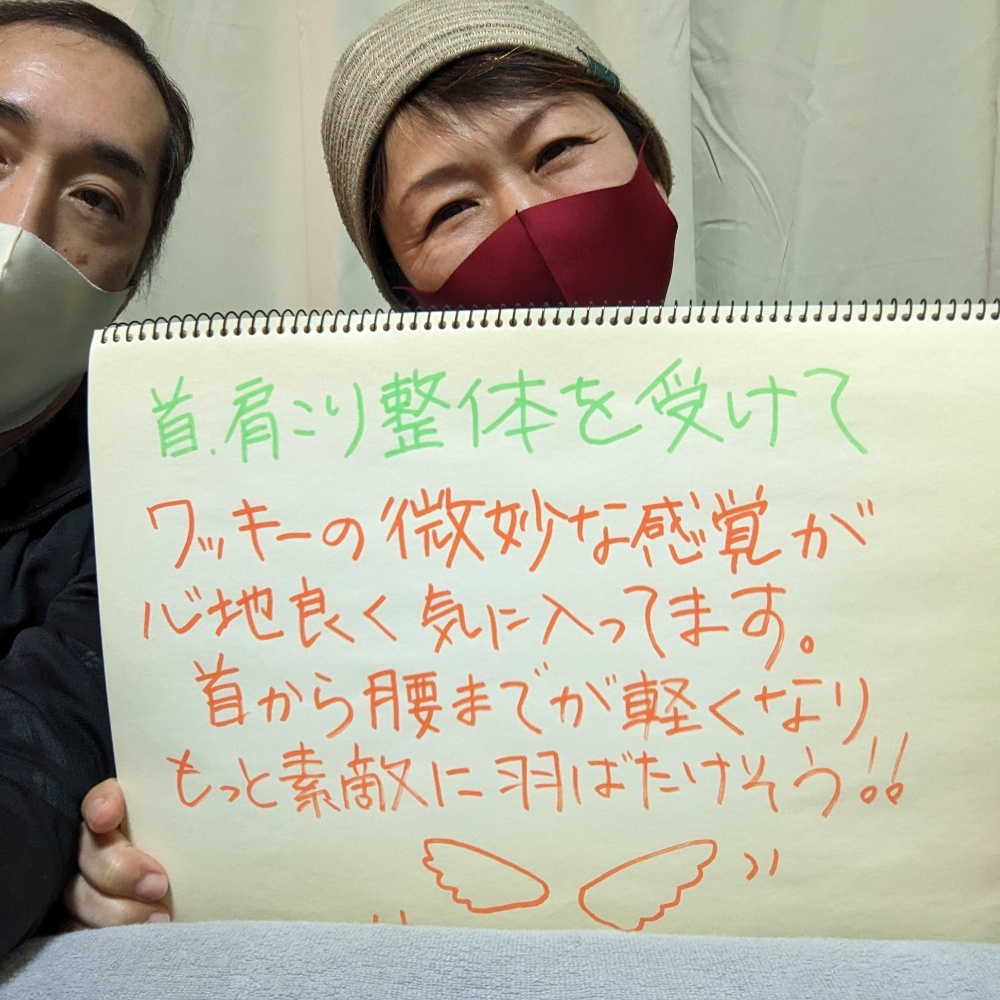 首.肩こり整体を受けて
ワッキーの微妙な感覚が
心地良く気に入ってます。
首から腰までが軽くなり
もっと素敵に羽ばたけそう!!